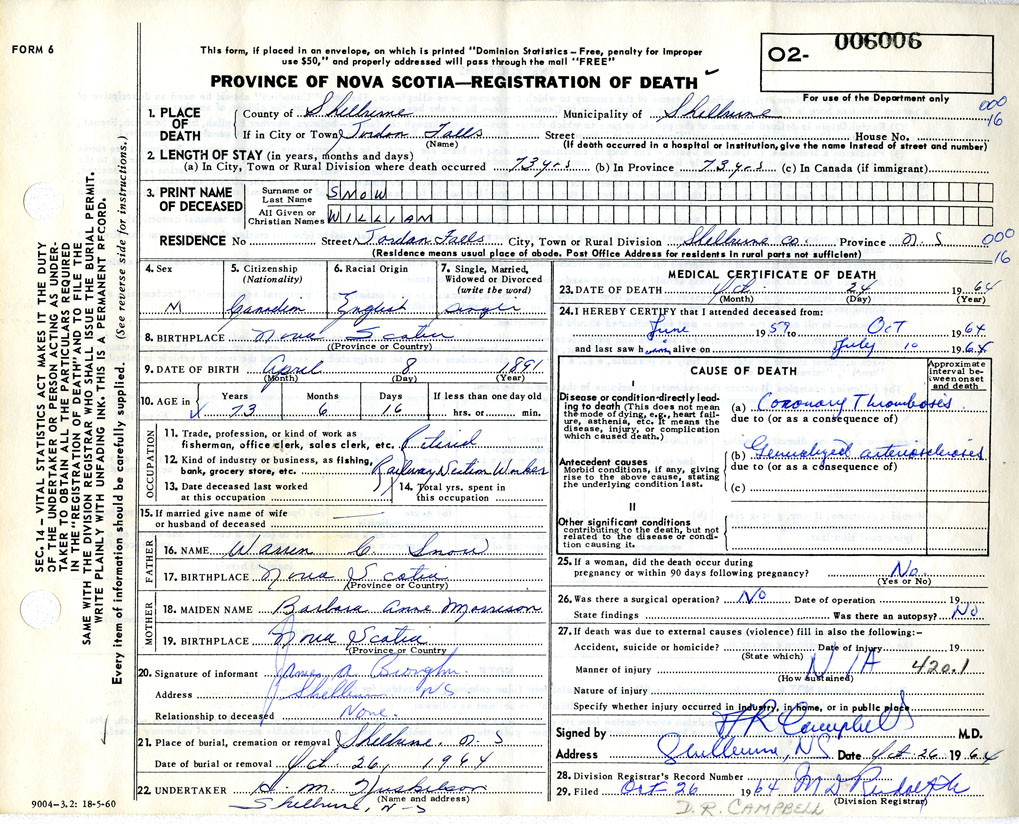 FORM 6
This form, if placed in an envelope, on which is printed "Dominion Statistics – Free, penalty for improper
use $50," and properly addressed will pass through the mail "FREE"
PROVINCE OF NOVA SCOTIA—REGISTRATION OF DEATH
O2- 006006
For use of the Department only
000
16
1. PLACE OF DEATH
County of Shelburne Municipality of Shelburne
If in City or Town Jordan Falls Street House No.
(Name) (If death occurred in a hospital or institution, give the name instead of street and number)
2. LENGTH OF STAY (in years, months and days)
(a) In City, Town or Rural Division where death occurred 73 yrs (b) In Province 73 yrs (c) In Canada (if immigrant)
3. PRINT NAME OF DECEASED
Surname or Last Name SNOW
All Given or Christian Names WILLIAM
RESIDENCE No Street Jordan Falls City, Town or Rural Division Shelburne Co. Province N.S
(Residence means usual place of abode. Post Office Address for residents in rural parts not sufficient)
000
16
4. Sex M
5. Citizenship (Nationality) Canadian
6. Racial Origin English
7. Single, Married, Widowed or Divorced (write the word) Single
8. BIRTHPLACE Nova Scotia
(Province or Country)
9. DATE OF BIRTH April 8 1891
(Month) (Day) (Year)
10. AGE in Years 73 Months 6 Days 16 If less than one day old hrs. or min.
OCCUPATION
11. Trade, profession, or kind of work as
fisherman, office clerk, sales clerk, etc. Retired
12. Kind of industry or business, as fishing,
bank, grocery store, etc. Railway Section Worker
13. Date deceased last worked
at this occupation
14. Total yrs. spent in
this occupation
15. If married give name of wife
or husband of deceased —
FATHER
16. NAME Warren C. Snow
17. BIRTHPLACE Nova Scotia
(Province or Country)
MOTHER
18. MAIDEN NAME Barbara Anne Morrison
19. BIRTHPLACE Nova Scotia
(Province or Country
20. Signature of informant James A
Address Shelburne NS
Relationship to deceased None.
21. Place of burial, cremation or removal Shelburne, N.S
Date of burial or removal Oct. 26, 1964
22. UNDERTAKER H. M. Huskilson
(Name and address)
Shelburne, N-S
MEDICAL CERTIFICATE OF DEATH
23. DATE OF DEATH Oct. 24 1964
(Month) (Day) (Year)
24. I HEREBY CERTIFY that I attended deceased from:
June 1957 to Oct 1964
and last saw him alive on July 10 1964
CAUSE OF DEATH
Approximate interval between onset and death
I
Disease or condition directly lead-
ing to death (This does not mean
the mode of dying, e.g., heart fail-
ure, asthenia, etc. It means the
disease, injury, or complication
which caused death.)
(a) Coronary Thrombosis
due to (or as a consequence of)
Antecedent causes
Morbid conditions, if any, giving
rise to the above cause, stating
the underlying condition last.
(b) Generalized arteriosclerosis
due to (or as a consequence of)
(c)
II
Other significant conditions
contributing to the death, but not
related to the disease or condi-
tion causing it.
25. If a woman, did the death occur during
pregnancy or within 90 days following pregnancy? No
(Yes or No)
26. Was there a surgical operation? No Date of operation 19
State findings Was there an autopsy? No
27. If death was due to external causes (violence) fill in also the following:–
Accident, suicide or homicide? Date of injury 19
(State which)
Manner of injury N/A 420.1
(How sustained)
Nature of injury
Specify whether injury occurred in industry, in home, or in public place
Signed by Campbell M.D.
Address Shelburne, N.S. Date Oct. 26 1964
28. Division Registrar's Record Number
29. Filed Oct 26 1964
(Division Registrar)
D. R. CAMPBELL
9004–3.2: 18-5-60
SEC. 14 – VITAL STATISTICS ACT MAKES IT THE DUTY
OF THE UNDERTAKER OR PERSON ACTING AS UNDER-
TAKER TO OBTAIN ALL THE PARTICULARS REQUIRED
IN THE "REGISTRATION OF DEATH" AND TO FILE THE
SAME WITH THE DIVISION REGISTRAR WHO SHALL ISSUE THE BURIAL PERMIT.
WRITE PLAINLY WITH UNFADING INK. THIS IS A PERMANENT RECORD.
Every item of information should be carefully supplied. (See reverse side for instructions.)